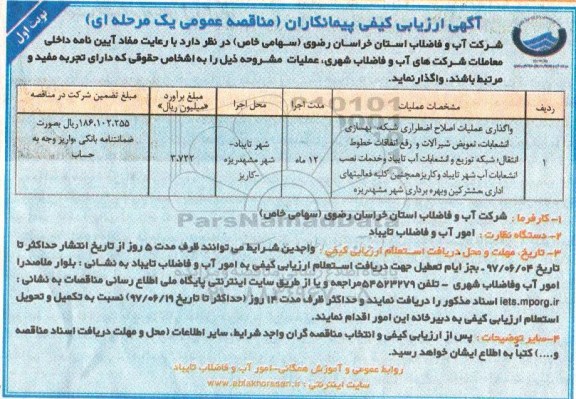 نوبت اول
آگهی ارزیابی کیفی پیمانکاران (مناقصه عمومی یک مرحله ای)
شرکت آب و فاضلاب استان خراسان رضوی (سهامی خاص) در نظر دارد با رعایت مفاد آیین نامه داخلی
معاملات شرکت های آب و فاضلاب شهری، عملیات مشروحه ذیل را به اشخاص حقوقی که دارای تجربه مفید و
مرتبط باشند، واگذار نماید.
ردیف مشخصات عملیات مدت اجرا محل اجرا مبلغ برآورد «میلیون ریال» مبلغ تضمین شرکت در مناقصه
۱
واگذاری عملیات اصلاح اضطراری شبکه، بهسازی
انشعابات، تعویض شیرآلات و رفع اتفاقات خطوط
انتقال؛ شبکه توزیع و انشعابات آب تایباد و خدمات نصب
انشعابات آب شهر تایباد و کاریز همچنین کلیه فعالیتهای
اداری مشترکین و بهره برداری شهر مشهدریزه
۱۲ ماه
شهر تایباد-
شهر مشهدریزه
-کاریز
۳.۷۲۲
۱۸۶.۱۰۲.۲۵۵ ریال بصورت
ضمانتنامه بانکی ،واریز وجه به
حساب
ParsNamadData
۱-کارفرما : شرکت آب و فاضلاب استان خراسان رضوی (سهامی خاص)
۲-دستگاه نظارت : امور آب و فاضلاب تایباد
۳- تاریخ، مهلت و محل دریافت استعلام ارزیابی کیفی : واجدین شرایط می توانند ظرف مدت ۵ روز از تاریخ انتشار حداکثر تا
تاریخ ۹۷/۰۶/۰۴ ـ بجز ایام تعطیل جهت دریافت استعلام ارزیابی کیفی به امور آب و فاضلاب تایباد به نشانی : بلوار ملاصدرا
امور آب و فاضلاب شهری - تلفن ۵۴۵۲۳۲۷۹ مراجعه و یا از طریق سایت اینترنتی پایگاه ملی اطلاع رسانی مناقصات به نشانی :
iets.mporg.ir اسناد مذکور را دریافت نمایند و حداکثر ظرف مدت ۱۴ روز (حداکثر تا تاریخ ۹۷/۰۶/۱۹) نسبت به تکمیل و تحویل
استعلام ارزیابی کیفی به دبیرخانه این امور اقدام نمایند.
۴-سایر توضیحات : پس از ارزیابی کیفی و انتخاب مناقصه گران واجد شرایط، سایر اطلاعات (محل و مهلت دریافت اسناد مناقصه
و....) کتباً به اطلاع ایشان خواهد رسید.
روابط عمومی و آموزش همگانی-امور آب و فاضلاب تایباد
سایت اینترنتی : www.abfakhorasan.ir